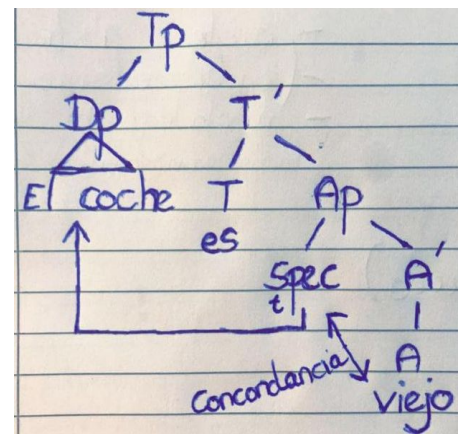 Tp
Dp T'
El coche T Ap
es
Spec A'
t
A
Concordancia viejo